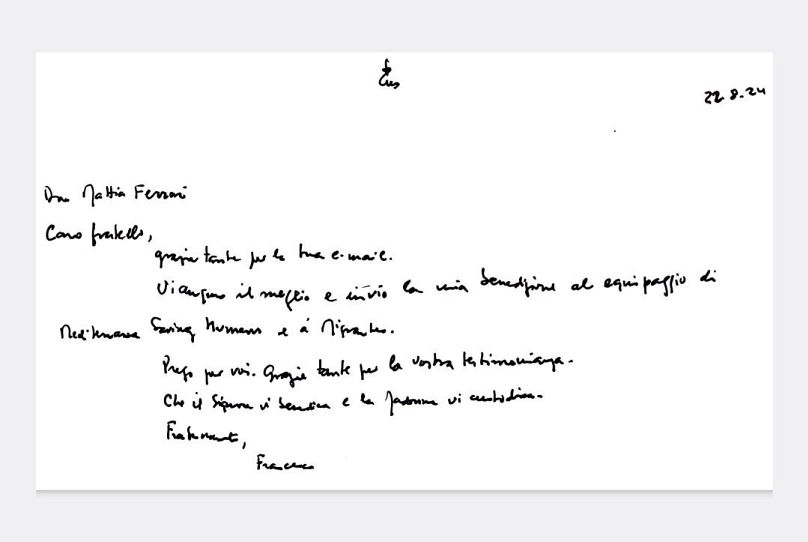 22.8.24
Don Mattia Ferrari
Caro fratello,
grazie tante per la tua e-mail.
Vi auguro il meglio e invio la mia benedizione al equipaggio di
Mediterranea Saving Humans e a Migrantes.
Prego per voi. Grazie tante per la vostra testimonianza.
Che il Signore vi benedica e la Madonna vi custodisca.
Fraternamente,
Francesco